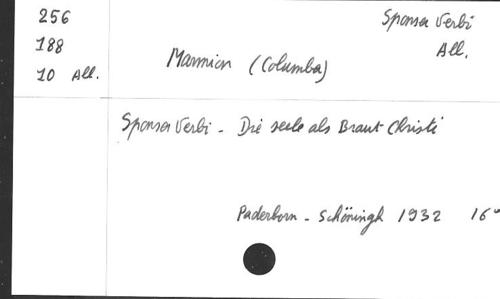 256
188
10 All.
Sponsa Verbi
All.
Marmion (Columba)
Sponsa Verbi - Die seele als Braut Christi
Paderborn - Schöningh 1932 16°